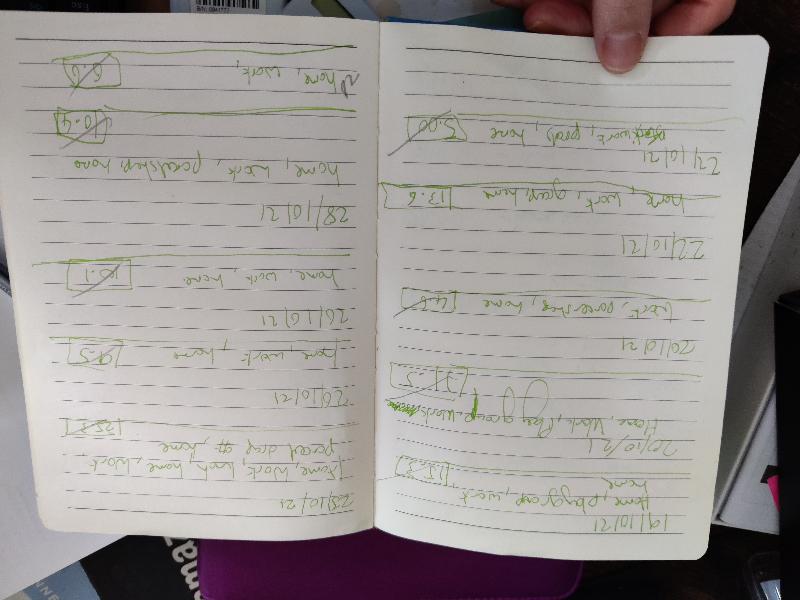 19/10/21
Home, playgroup, work
home 15.3
20/10/21
Home, Work, group, work
31.5
20/10/21
Work, home 4.6
22/10/21
home, work, home 13.6
work, home 5.00
25/10/21
Home, Work, home, work
parcel drop off, home
26/10/21
home, work, home 9.5
26/16/21
home, work, home 10.1
28/10/21
home, work, parcelshop, home
10.4
home, work, 6.6